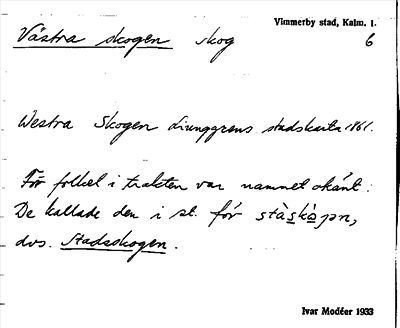 Vimmerby stad, Kalm. l.
Västra skogen skog 6
Westra Skogen Liunggrens stadskarta 1861.
För folket i trakten var namnet okänt.
De kallade den i st. för stàskògən,
dvs. Stadsskogen.
Ivar Modéer 1933